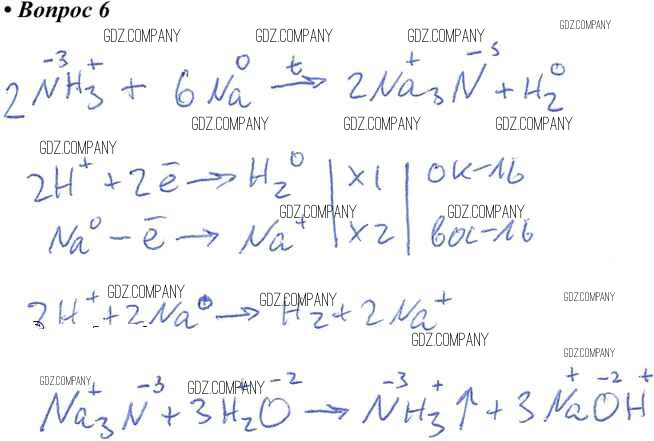 • Вопрос 6
GDZ.COMPANY GDZ.COMPANY GDZ.COMPANY GDZ.COMPANY
2N⁻³H⁺₃ + 6Na⁰ →ᵗ 2Na⁺₃N⁻³ + H₂⁰
GDZ.COMPANY GDZ.COMPANY GDZ.COMPANY
GDZ.COMPANY
2H⁺ + 2ē → H₂⁰ | ×1 | ок-ль
GDZ.COMPANY GDZ.COMPANY
Na⁰ - ē → Na⁺ | ×2 | вос-ль
GDZ.COMPANY GDZ.COMPANY GDZ.COMPANY
2H⁺ + 2Na⁰ → H₂ + 2Na⁺
GDZ.COMPANY
GDZ.COMPANY
GDZ.COMPANY GDZ.COMPANY
Na⁺₃N⁻³ + 3H⁺₂O⁻² → N⁻³H⁺₃↑ + 3Na⁺O⁻²H⁺